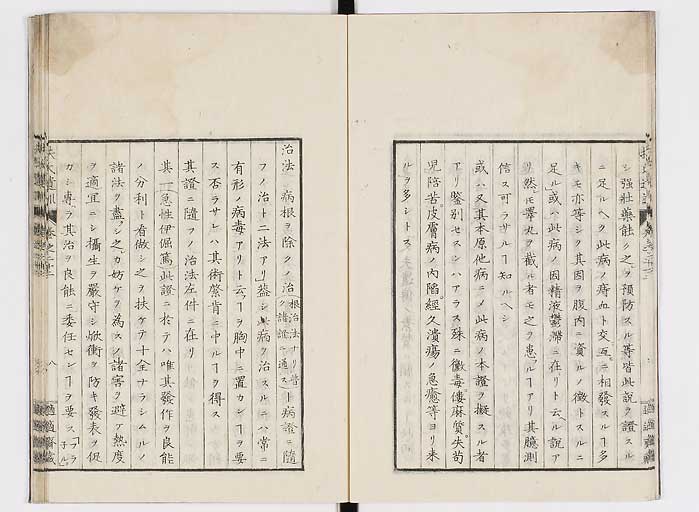 シ強壮薬能ク之ヲ預防スル等皆此説ヲ證スル
ニ足ルヘク此病ノ痔血ト交互ニ相發スルヿ多
キモ亦等シク其因ヲ腹内ニ資ルノ徴トスルニ
足ル或ハ此病ノ因精液鬱滞ニ在リト云ル説ア
リ然モ睾丸ヲ截ル者モ之ヲ患ルヿアリ其臆測
信ス可ラサルヿ知ルヘシ
或ハ又其本原他病ニノ此病ノ本證ヲ擬スル者
アリ鑒別セスンハアラス殊ニ黴毒僂麻質失苟
児陪苦皮膚病ノ内陥經久潰瘍ノ急癒等ヨリ来
ルヲ多シトス
治法 病根ヲ除クノ治根治法ナリ普ク諸證ニ通ストト病證ニ隨
フノ治ト二法アリ蓋シ此病ヲ治スルニハ常ニ
有形ノ病毒アリト云ヿヲ胸中ニ置カンヿヲ要
ス否ラサレハ其術肯ニ中ルヿヲ得ス
其證ニ隨フノ治法左件ニ在リ
其一急性伊偪篤此證ニ於テハ唯其發作ヲ良能
ノ分利ト看做シ之ヲ扶ケテ十全ナラシムルノ
諸法ヲ盡シ之カ妨ケヲ為スノ諸害ヲ避ケ熱度
ヲ適宜ニシ攝生ヲ嚴守シ焮衝ヲ防キ發表ヲ促
カシ專ラ其治ヲ良能ニ委任センヿヲ要ス
扶氏經驗遺訓 卷之二十二
八
適適齋藏